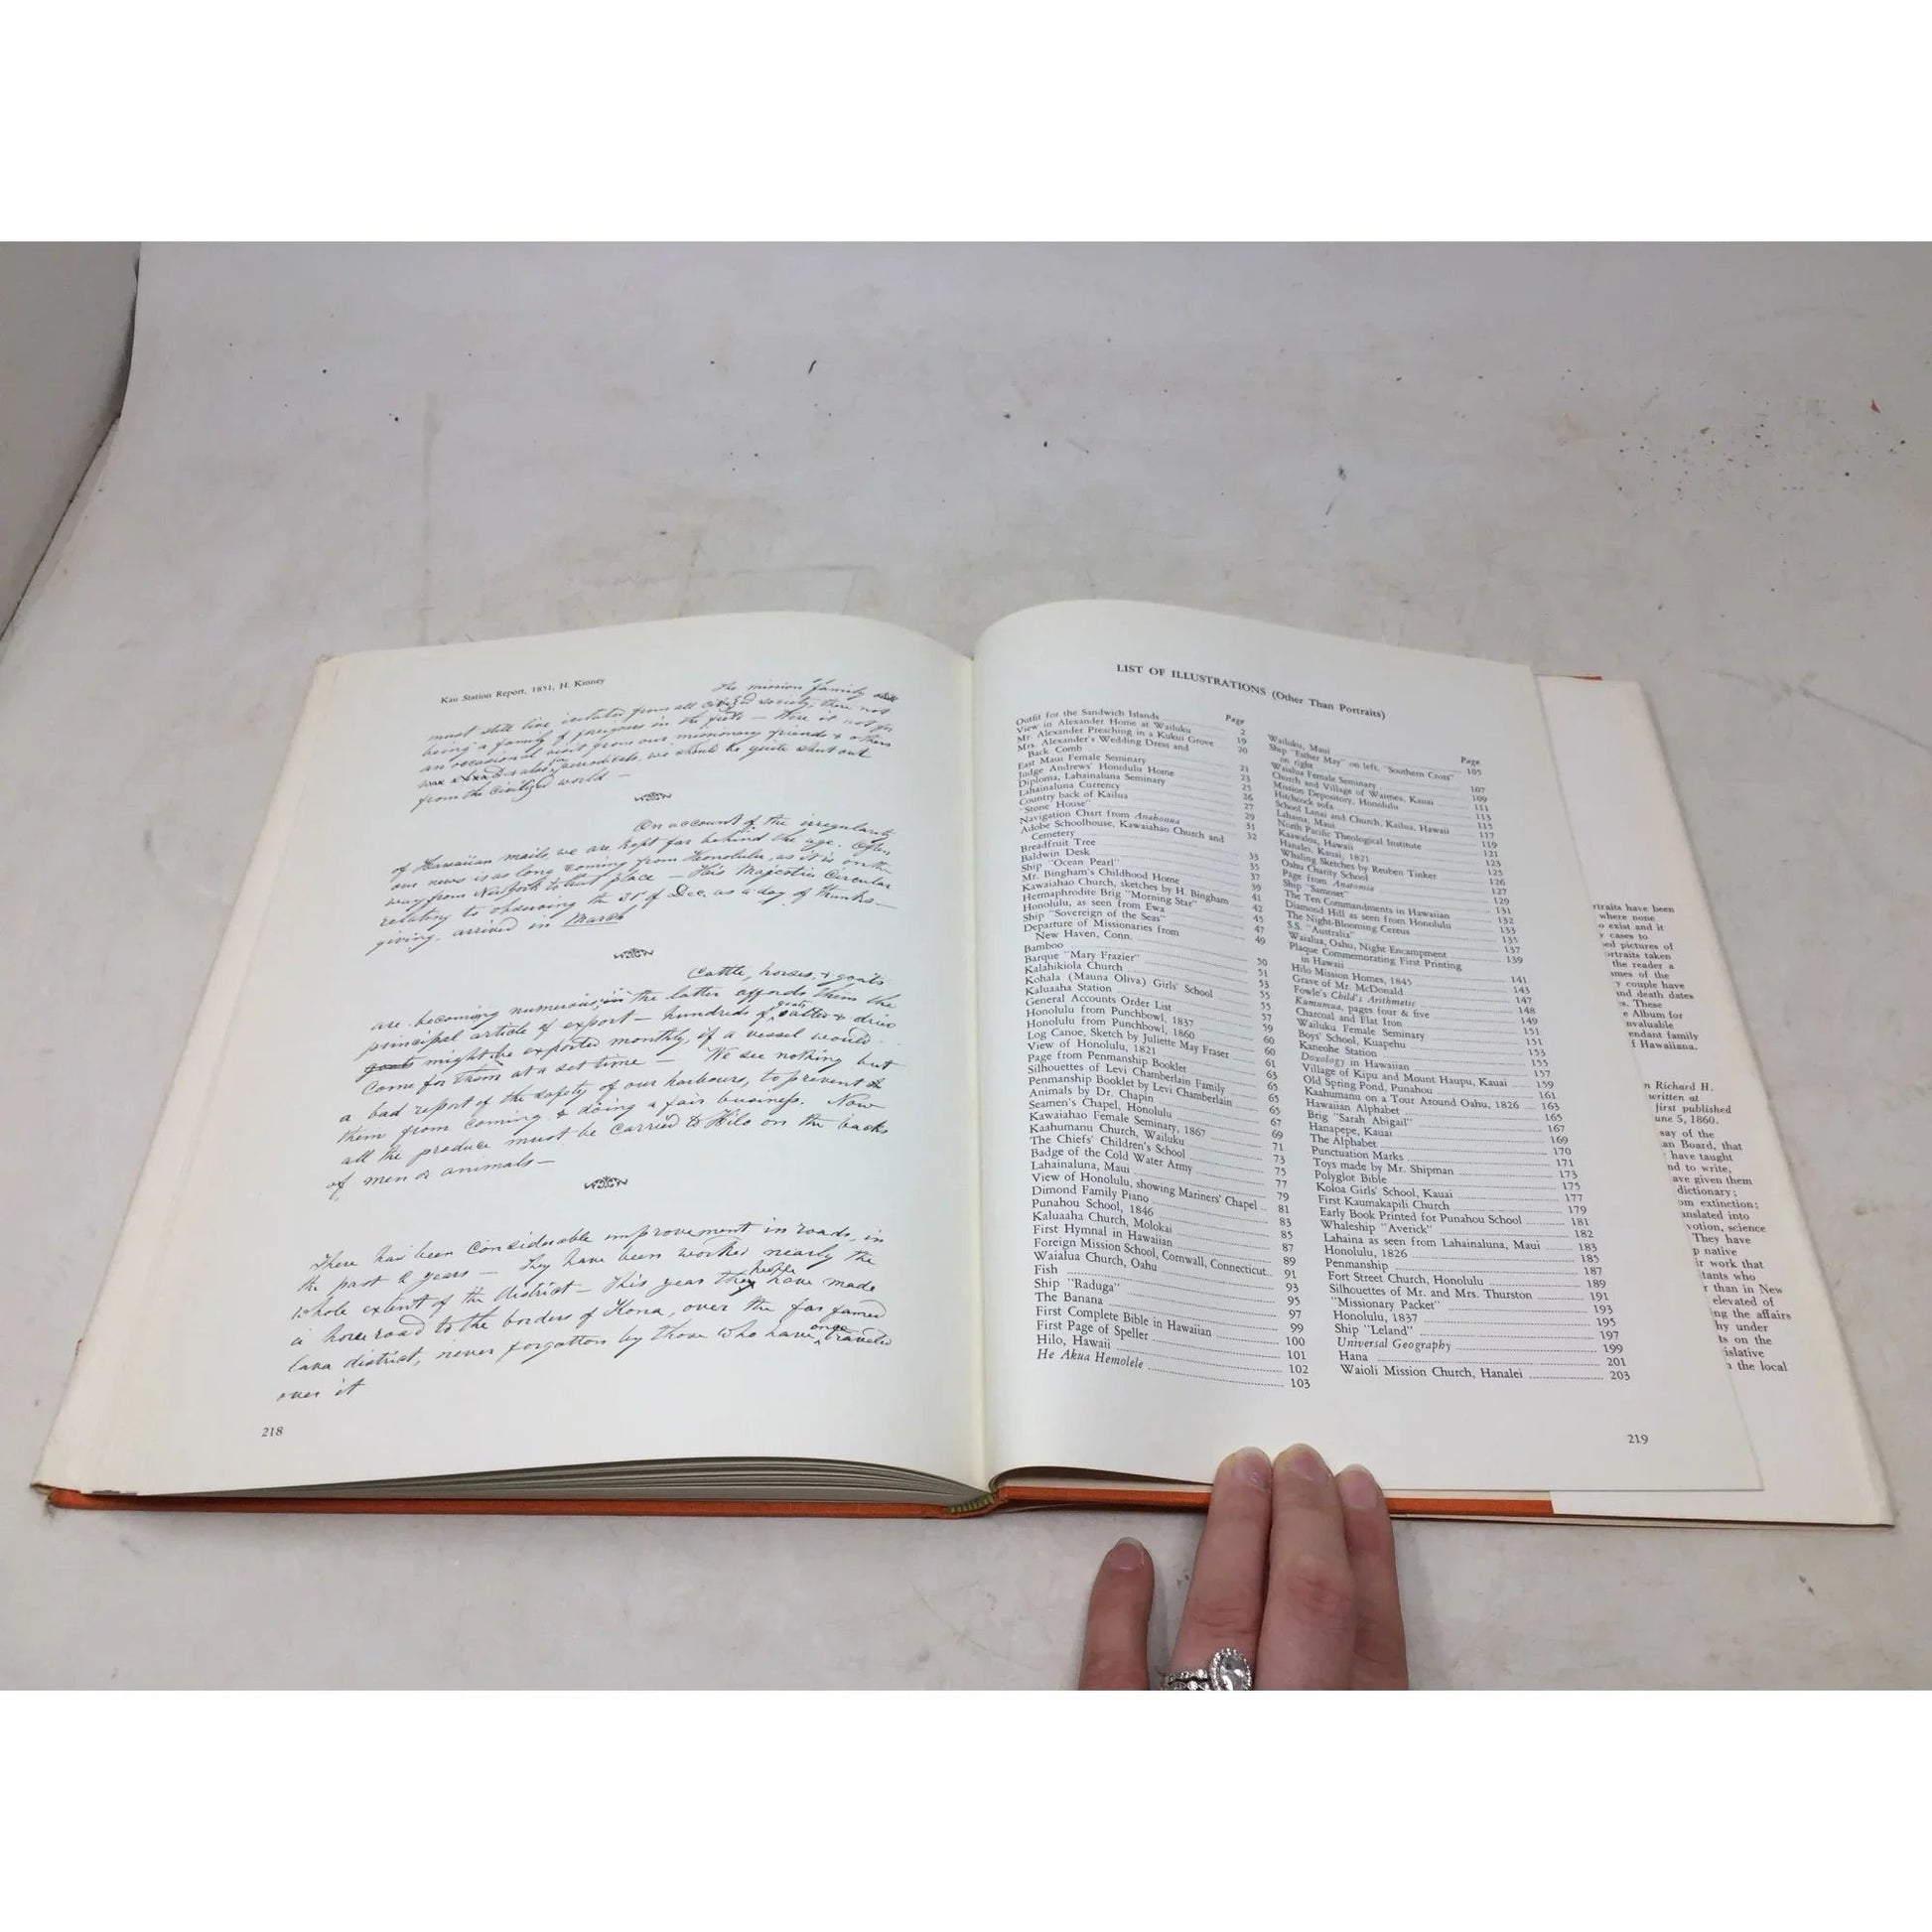 Kau Station Report, 1851, H. Kinney
The mission family
must still live isolated from all civilized society, there not
being a family of foreigners in the field — Were it not for
an occasional visit from our missionary friends & others
also periodicals, we should be quite shut out
from the civilized world —
On account of the irregularity
of Hawaiian mails, we are kept far behind the age. Often
our news is as long coming from Honolulu, as it is on the
way from New York to that place — His Majesties Circular
relating to observing the 31st of Dec. as a day of thanks-
giving, arrived in March
Cattle, horses, & goats
are becoming numerous, the latter affords them the
principal article of export — hundreds of goats
goats might be exported monthly, if a vessel would
come for them at a set time — We see nothing but
a bad report of the safety of our harbours, to prevent
them from coming & doing a fair business. Now
all the produce must be carried to Hilo on the backs
of men or animals —
There has been considerable improvement in roads, in
the past 2 years — They have been worked nearly the
whole extent of the district — This year the people have made
a horse road to the borders of Kona, over the far famed
lava district, never forgotten by those who have once traveled
over it
218
LIST OF ILLUSTRATIONS (Other Than Portraits)
Page
Outfit for the Sandwich Islands 2
View in Alexander Home at Wailuku 19
Mr. Alexander Preaching in a Kukui Grove 20
Mrs. Alexander's Wedding Dress and
Back Comb 21
East Maui Female Seminary 23
Judge Andrews' Honolulu Home 25
Diploma, Lahainaluna Seminary 26
Lahainaluna Currency 27
Country back of Kailua 29
"Stone House" 31
Navigation Chart from Anahonua 32
Adobe Schoolhouse, Kawaiahao Church and
Cemetery 33
Breadfruit Tree 35
Baldwin Desk 37
Ship "Ocean Pearl" 39
Mr. Bingham's Childhood Home 41
Kawaiahao Church, sketches by H. Bingham 42
Hermaphrodite Brig "Morning Star" 45
Honolulu, as seen from Ewa 47
Ship "Sovereign of the Seas" 49
Departure of Missionaries from
New Haven, Conn. 50
Bamboo 51
Barque "Mary Frazier" 53
Kalahikiola Church 55
Kohala (Mauna Oliva) Girls' School 55
Kaluaaha Station 57
General Accounts Order List 59
Honolulu from Punchbowl, 1837 60
Honolulu from Punchbowl, 1860 60
Log Canoe, Sketch by Juliette May Fraser 61
View of Honolulu, 1821 63
Page from Penmanship Booklet 65
Silhouettes of Levi Chamberlain Family 65
Penmanship Booklet by Levi Chamberlain 65
Animals by Dr. Chapin 67
Seamen's Chapel, Honolulu 69
Kawaiahao Female Seminary, 1867 71
Kaahumanu Church, Wailuku 73
The Chiefs' Children's School 75
Badge of the Cold Water Army 77
Lahainaluna, Maui 79
View of Honolulu, showing Mariners' Chapel 81
Dimond Family Piano 83
Punahou School, 1846 85
Kaluaaha Church, Molokai 87
First Hymnal in Hawaiian 89
Foreign Mission School, Cornwall, Connecticut 91
Waialua Church, Oahu 93
Fish 95
Ship "Raduga" 97
The Banana 99
First Complete Bible in Hawaiian 100
First Page of Speller 101
Hilo, Hawaii 102
He Akua Hemolele 103
Page
Wailuku, Maui 105
Ship "Esther May" on left, "Southern Cross"
on right 107
Waialua Female Seminary 109
Church and Village of Waimea, Kauai 111
Mission Depository, Honolulu 113
Hitchcock sofa 115
School Lanai and Church, Kailua, Hawaii 117
Lahaina, Maui 119
North Pacific Theological Institute 121
Kaawaloa, Hawaii 123
Hanalei, Kauai, 1821 125
Whaling Sketches by Reuben Tinker 126
Oahu Charity School 127
Page from Anatomia 129
Ship "Samoset" 131
The Ten Commandments in Hawaiian 132
Diamond Hill as seen from Honolulu 133
The Night-Blooming Cereus 135
S.S. "Australia" 137
Waialua, Oahu, Night Encampment 139
Plaque Commemorating First Printing
in Hawaii 141
Hilo Mission Homes, 1845 143
Grave of Mr. McDonald 147
Fowle's Child's Arithmetic 148
Kumumua, pages four & five 149
Charcoal and Flat Iron 151
Wailuku Female Seminary 153
Boys' School, Kuapehu 155
Kaneohe Station 157
Doxology in Hawaiian 159
Village of Kipu and Mount Haupu, Kauai 161
Old Spring Pond, Punahou 163
Kaahumanu on a Tour Around Oahu, 1826 165
Hawaiian Alphabet 167
Brig "Sarah Abigail" 169
Hanapepe, Kauai 170
The Alphabet 171
Punctuation Marks 173
Toys made by Mr. Shipman 175
Polyglot Bible 177
Koloa Girls' School, Kauai 179
First Kaumakapili Church 181
Early Book Printed for Punahou School 182
Whaleship "Averick" 183
Lahaina as seen from Lahainaluna, Maui 185
Honolulu, 1826 187
Penmanship 189
Fort Street Church, Honolulu 191
Silhouettes of Mr. and Mrs. Thurston 193
"Missionary Packet" 195
Honolulu, 1837 197
Ship "Leland" 199
Universal Geography 201
Hana 203
Waioli Mission Church, Hanalei
219
have been
where none
exist and it
cases to
pictures of
taken
the reader a
of the
couple have
death dates
These
Album for
family
Hawaiiana.
Richard H.
written at
first published
1860.
say of the
Board, that
have taught
to write,
given them
dictionary;
extinction;
into
science
They have
native
work that
who
than in New
elevated of
the affairs
under
on the
the local